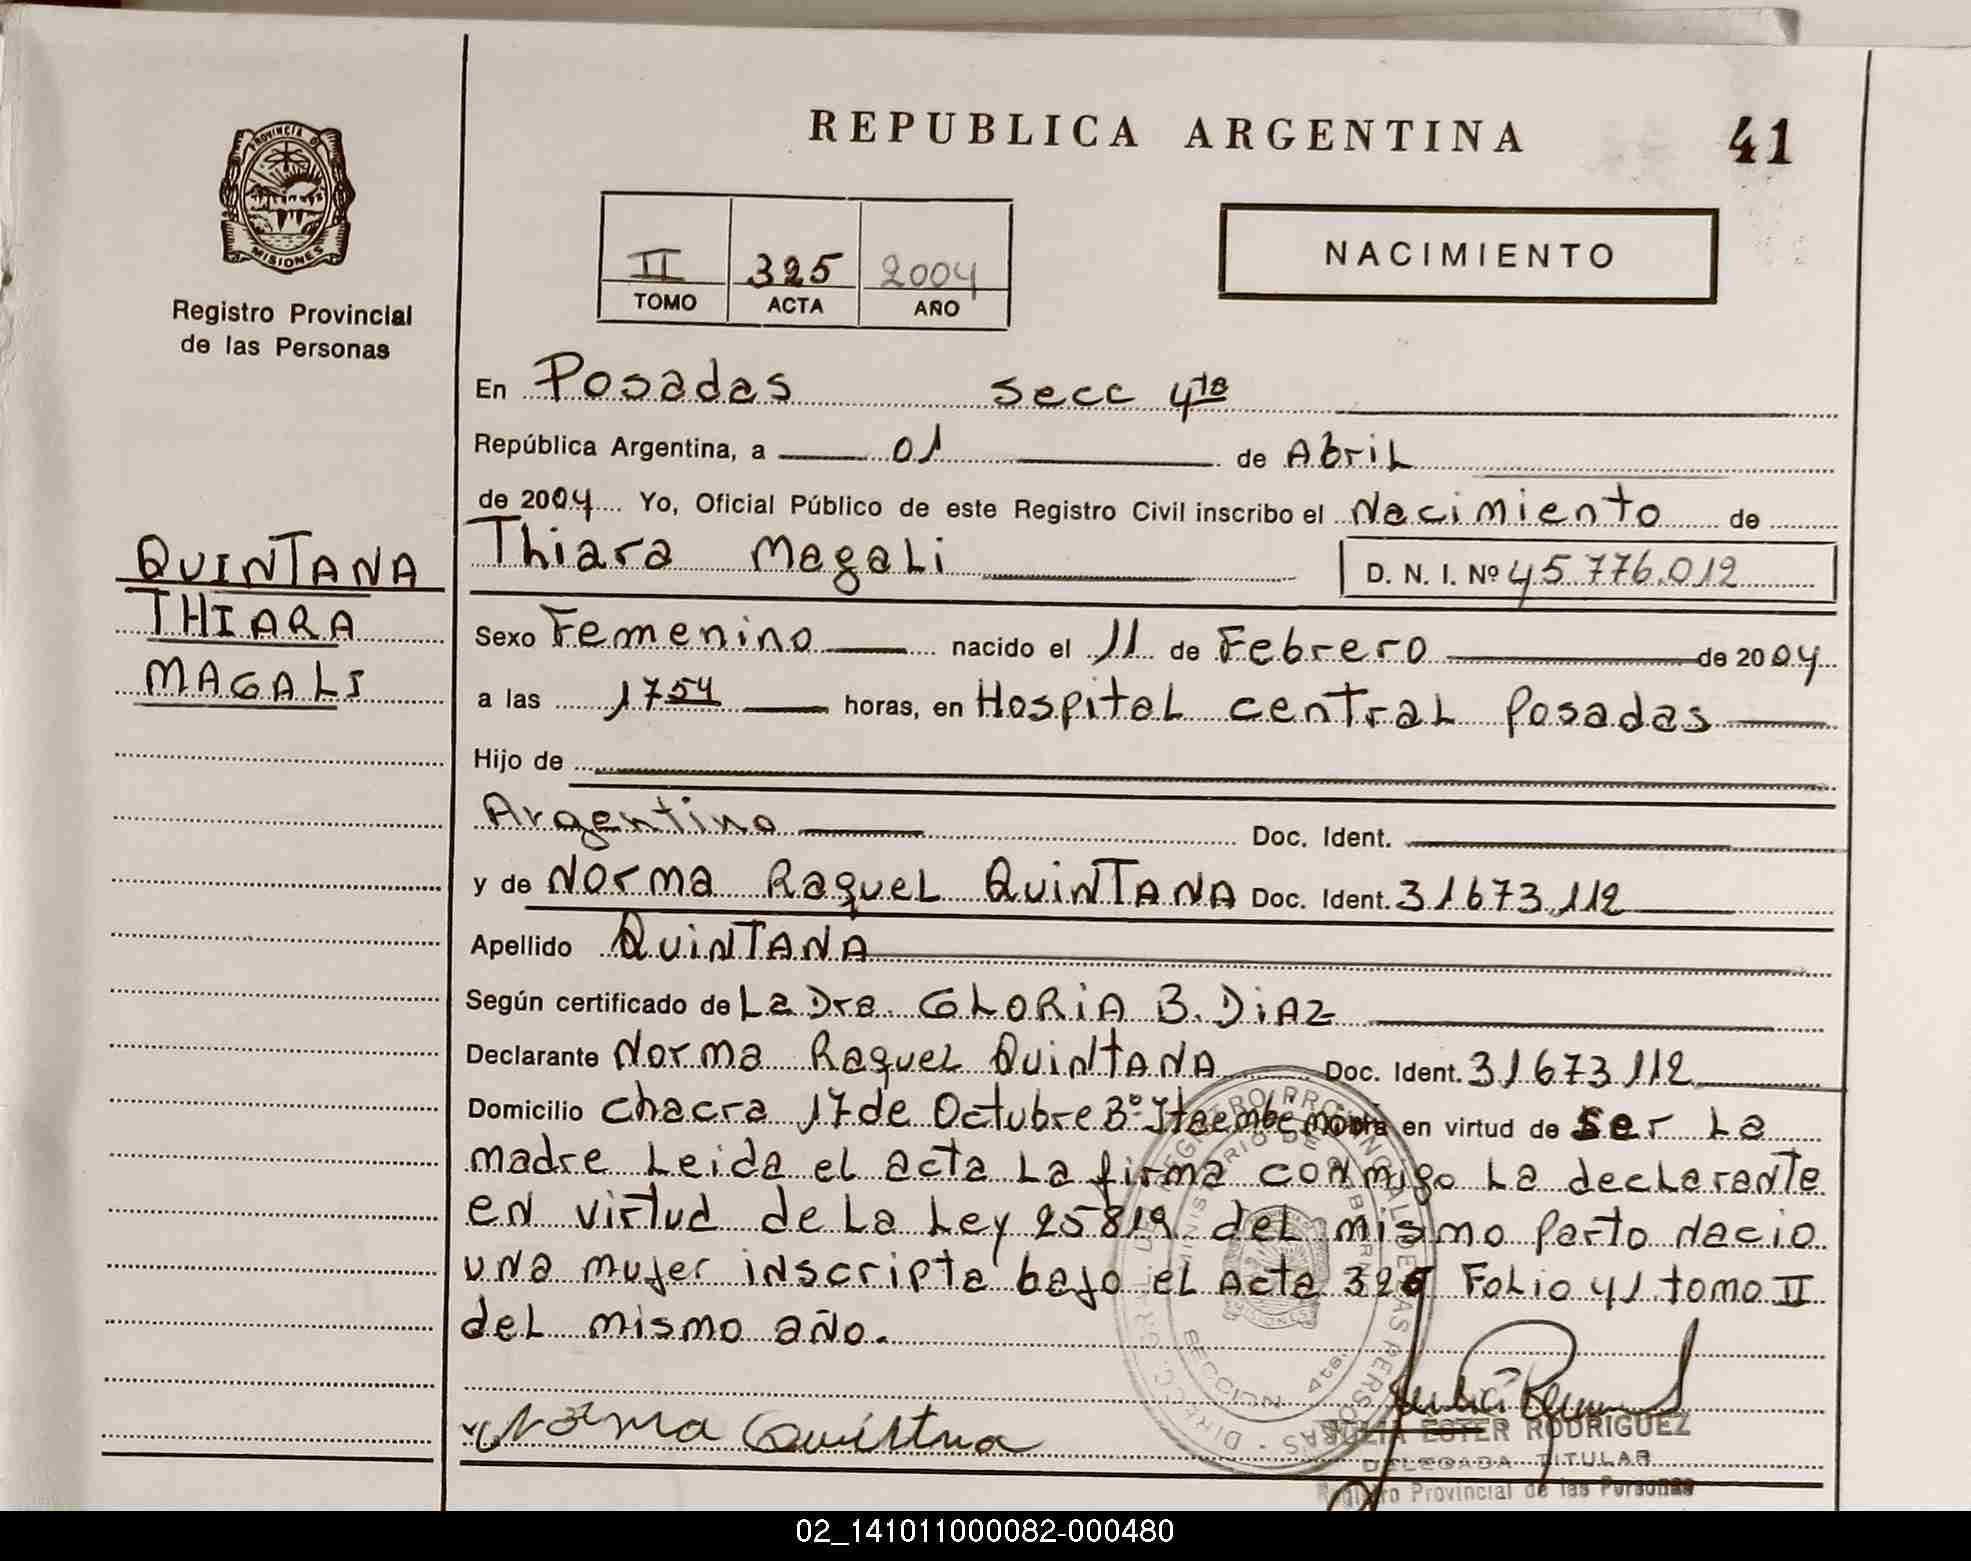 REPUBLICA ARGENTINA
41
PROVINCIA DE
MISIONES
Registro Provincial
de las Personas
II 325 2004
TOMO ACTA AÑO
NACIMIENTO
En Posadas secc 4ta
República Argentina, a 01 de Abril
de 2004 Yo, Oficial Público de este Registro Civil inscribo el Nacimiento de
Thiara Magali D. N. I. Nº 45.776.012
QUINTANA
THIARA
MAGALI
Sexo Femenino nacido el 11 de Febrero de 2004
a las 17 54 horas, en Hospital central Posadas
Hijo de
Argentina Doc. Ident.
y de Norma Raquel QuinTANA Doc. Ident. 31673.112
Apellido QuinTANA
Según certificado de La Dra. GLORiA B. DiAZ
Declarante Norma Raquel QuintANA Doc. Ident. 31673112
Domicilio chacra 17 de Octubre Bº Itaembe en virtud de ser La
madre Leida el acta La firma conmigo La declarante
en virtud de La Ley 25819. del mismo parto nacio
una mujer inscripta bajo el Acta Folio 41 tomo II
del mismo año.
Norma Quintna
ESTER RODRIGUEZ
DELEGADA TITULAR
Registro Provincial de las Personas
02_141011000082-000480